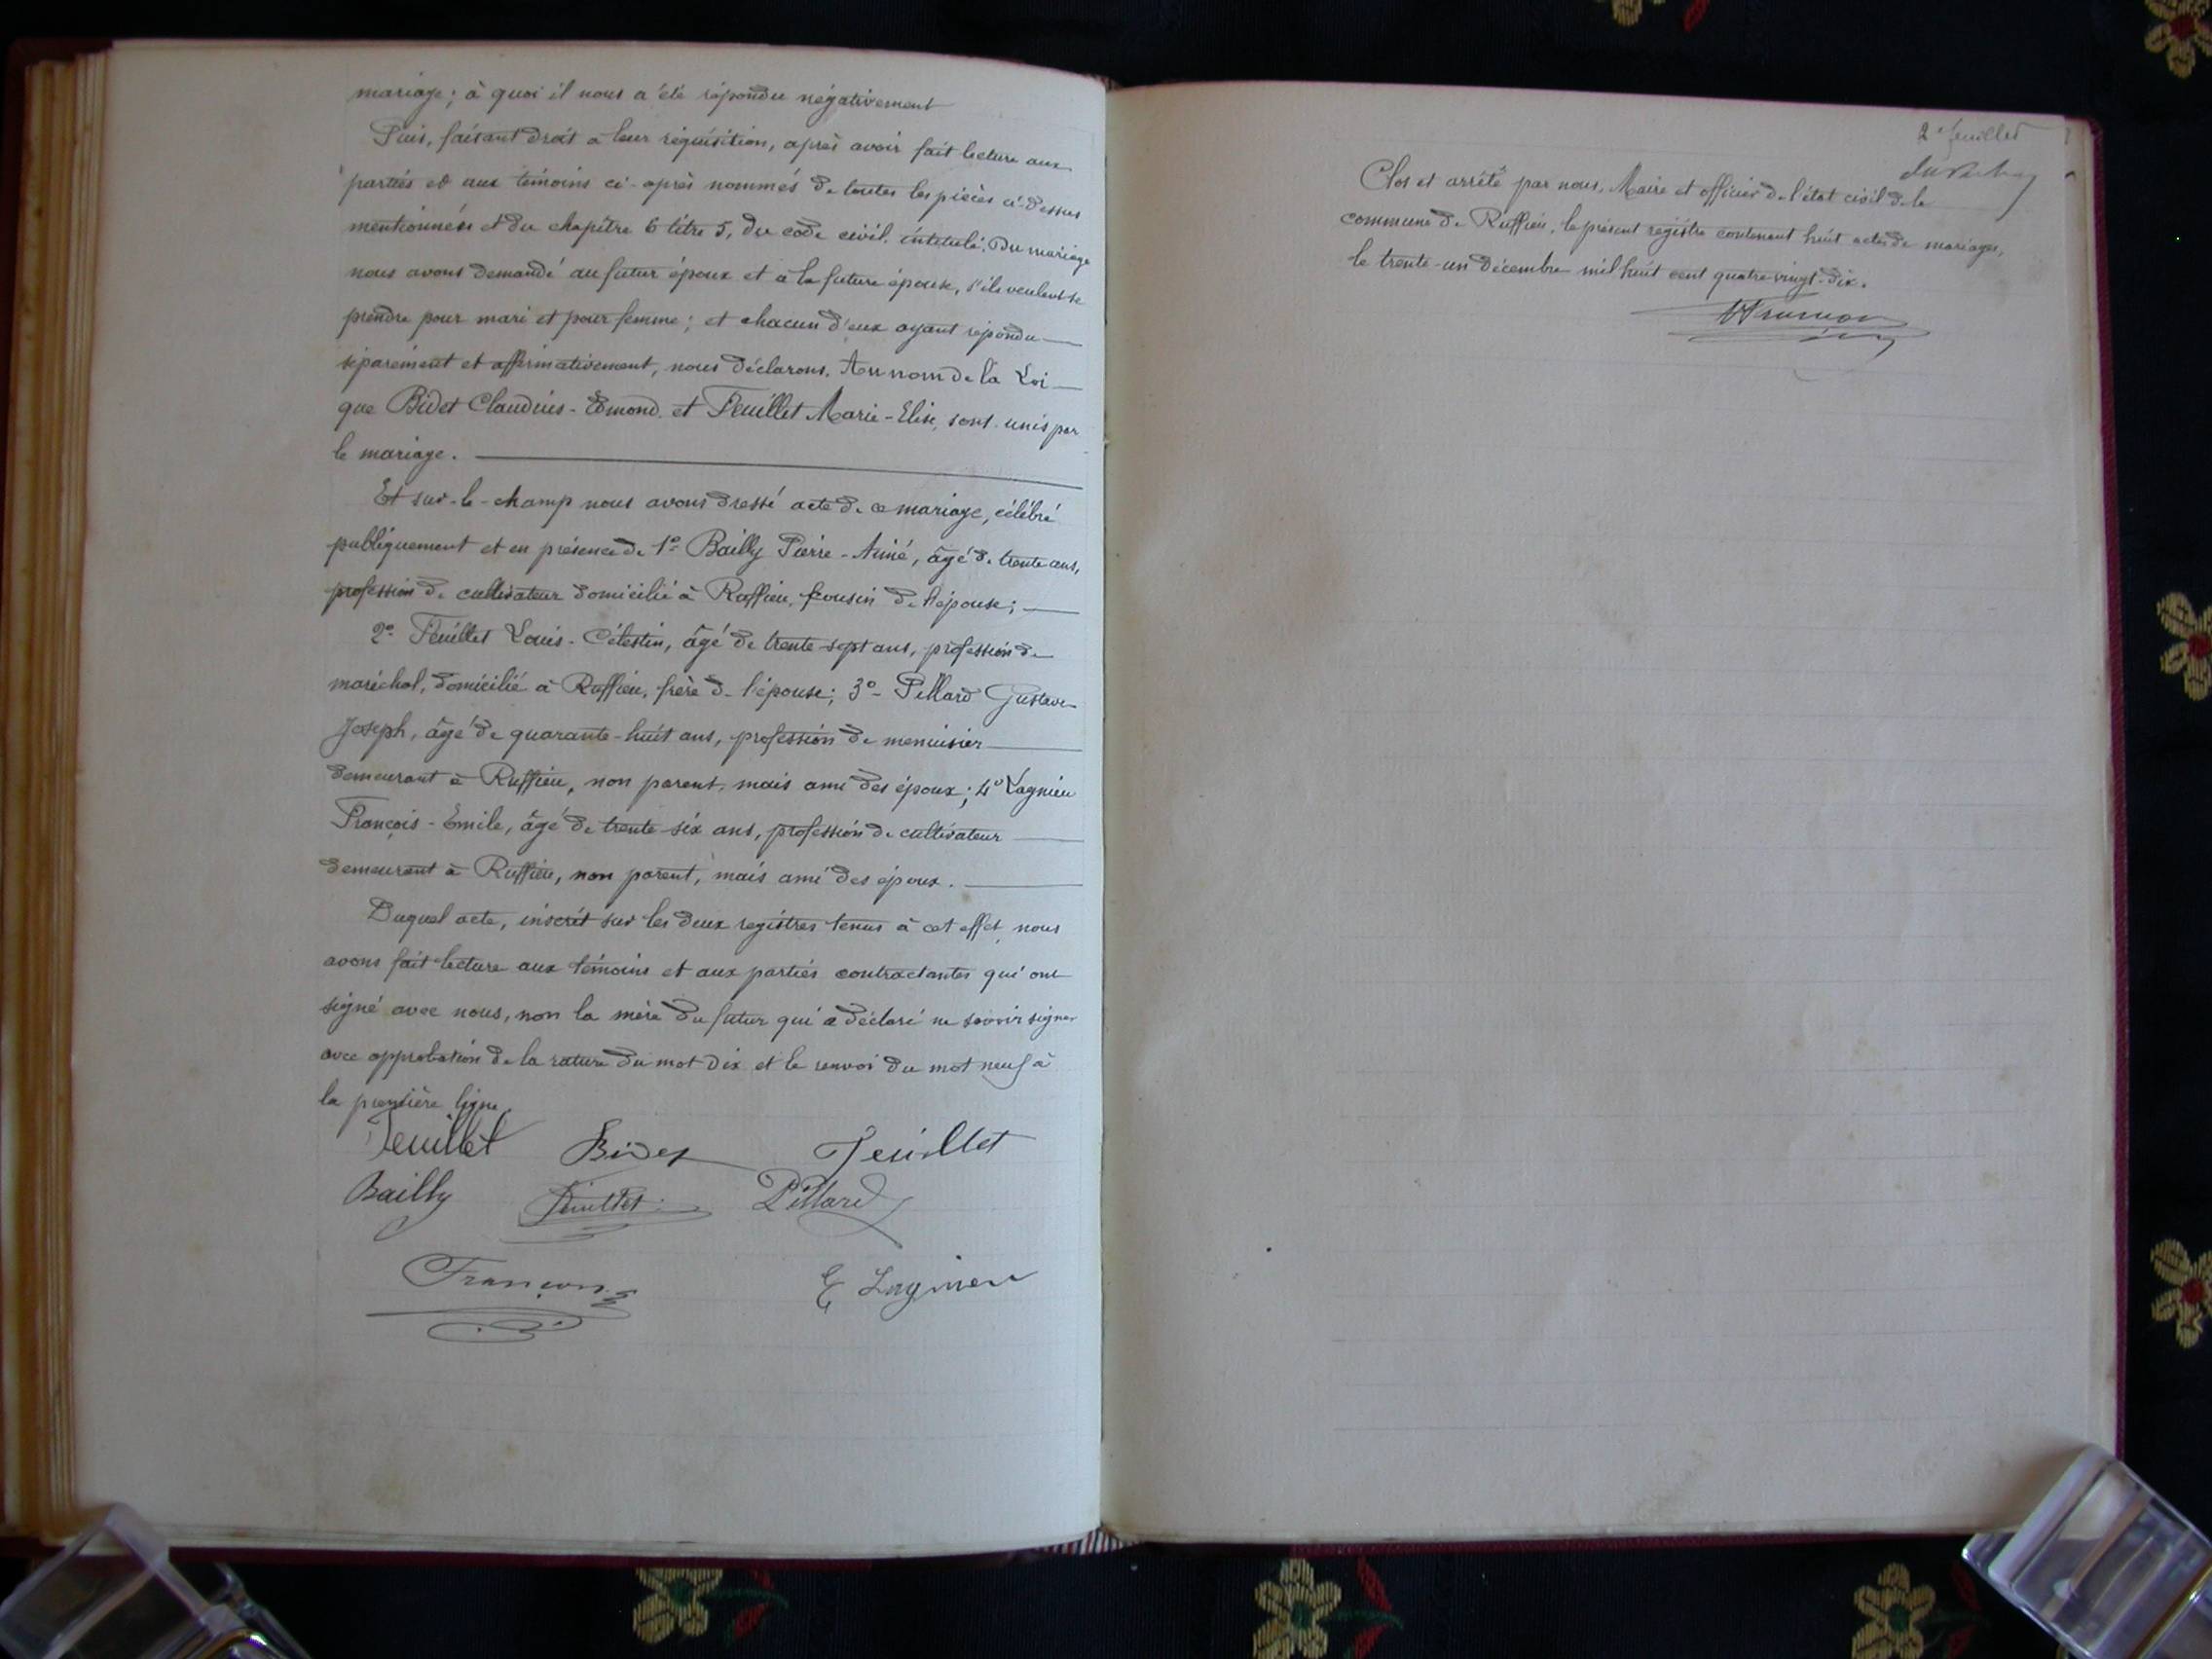 mariage; à quoi il nous a été répondu négativement
Puis, faisant droit à leur réquisition, après avoir fait lecture aux
parties et aux témoins ci-après nommés de toutes les pièces ci-dessus
mentionnées et du chapitre 6 titre 5, du code civil, intitulé: Du mariage
nous avons demandé au futur époux et à la future épouse, s'ils veulent se
prendre pour mari et pour femme; et chacun d'eux ayant répondu
séparément et affirmativement, nous déclarons, Au nom de la Loi
que Bidet Claudius-Edmond et Feuillet Marie-Elise, sont unis par
le mariage.
Et sur-le-champ nous avons dressé acte de ce mariage, célébré
publiquement et en présence de 1º Bailly Pierre-Aimé, âgé de trente ans,
profession de cultivateur domicilié à Ruffieu, cousin de l'épouse;
2º Feuillet Louis-Célestin, âgé de trente-sept ans, profession de
maréchal, domicilié à Ruffieu, frère de l'épouse; 3º Pillard Gustave
Joseph, âgé de quarante-huit ans, profession de menuisier
demeurant à Ruffieu, non parent, mais ami des époux; 4º Lagnieu
François-Emile, âgé de trente-six ans, profession de cultivateur
demeurant à Ruffieu, non parent, mais ami des époux.
Duquel acte, inscrit sur les deux registres tenus à cet effet, nous
avons fait lecture aux témoins et aux parties contractantes qui ont
signé avec nous, non la mère du futur qui a déclaré ne savoir signer
avec approbation de la rature du mot dix et le renvoi du mot neuf à
la première ligne.
Feuillet Bidet Feuillet
Bailly Feuillet Pillard
Françon E Lagnieu
2e feuillet
Clos et arrêté par nous, Maire et officier de l'état civil de la
commune de Ruffieu, le présent registre contenant huit actes de mariages,
le trente-un décembre mil huit cent quatre-vingt-dix.